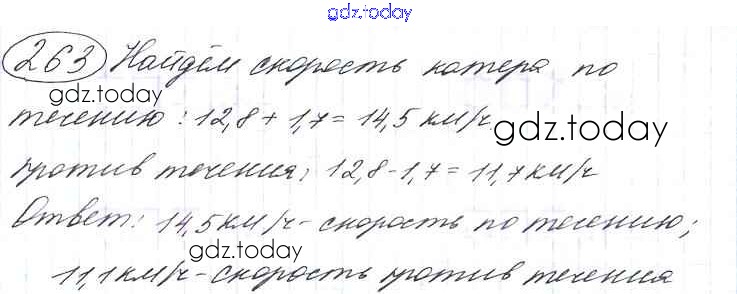 gdz.today
263 Найдём скорость катера по
gdz.today
течению: 12,8 + 1,7 = 14,5 км/ч
gdz.today
против течения: 12,8 - 1,7 = 11,7 км/ч
Ответ: 14,5 км/ч - скорость по течению;
gdz.today
11,1 км/ч - скорость против течения